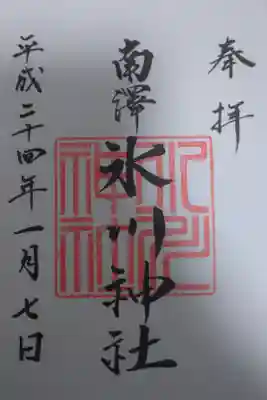 奉拝
南澤氷川神社
平成二十四年一月七日
氷川
神社